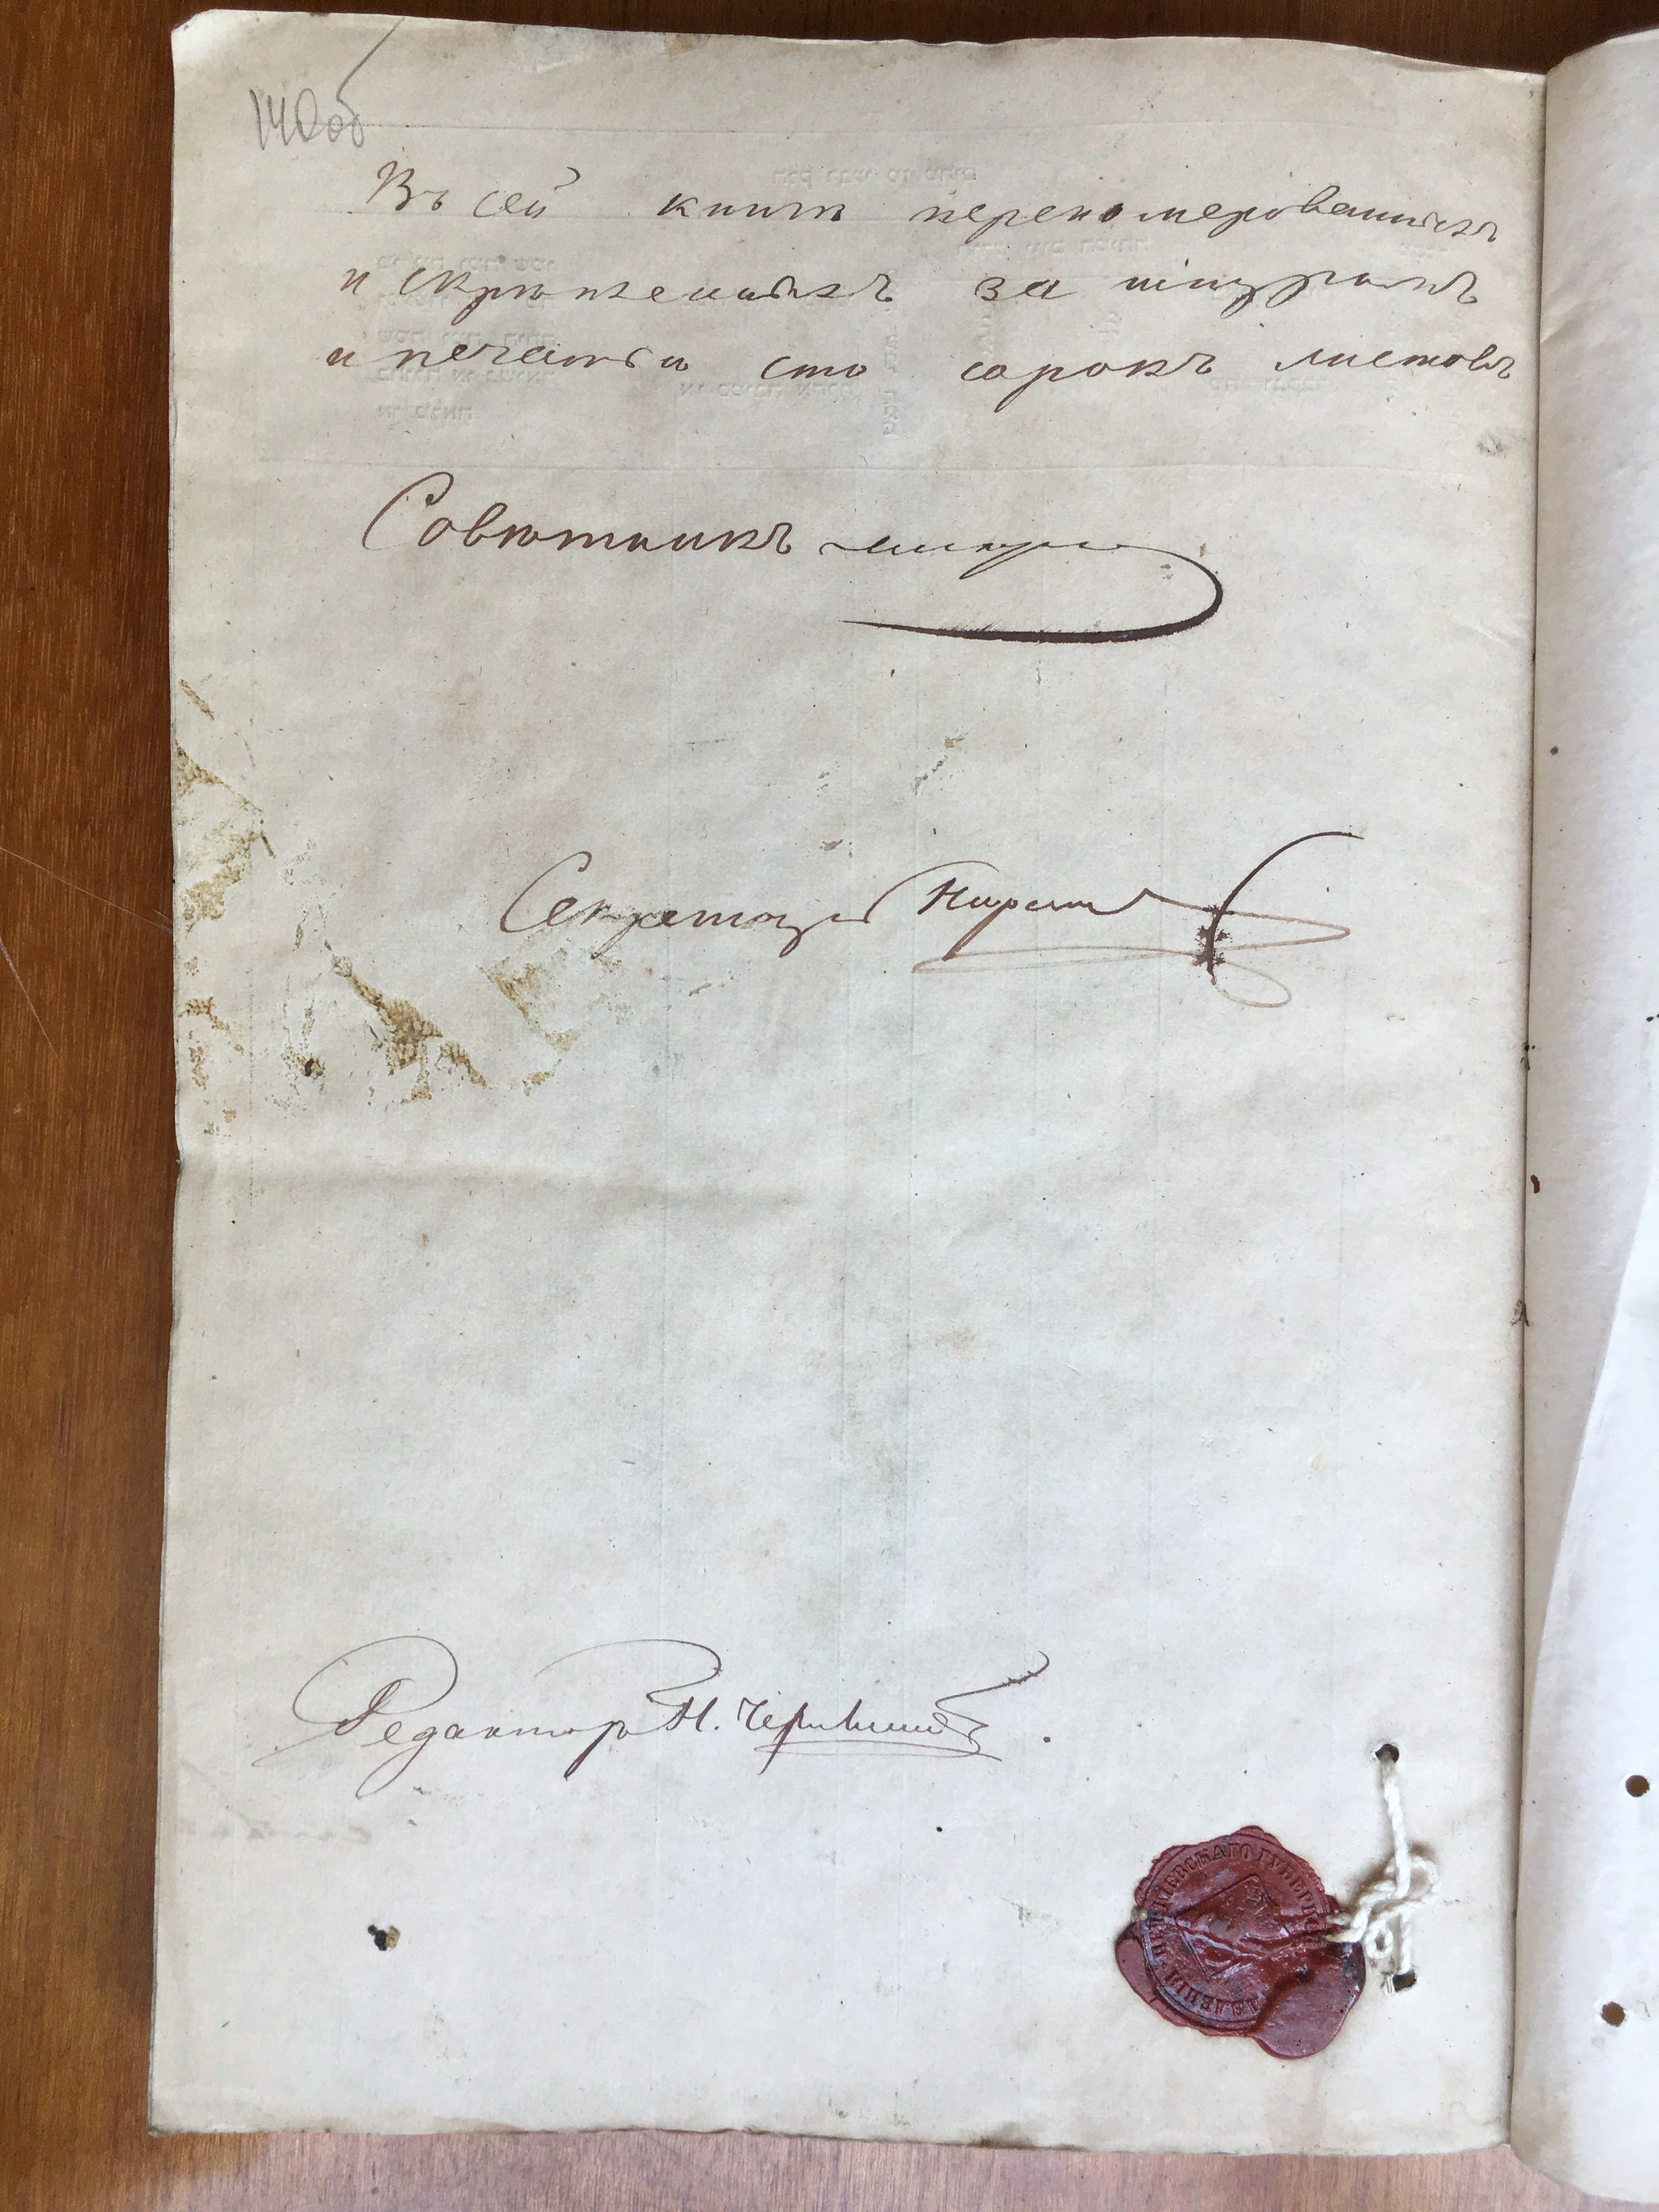 140об
Въ сей книгѣ перепомерованныхъ
и скрѣпленныхъ за шнуромъ
и печатью сто сорокъ листовъ
Совѣтникъ
Секретарь
Редакторъ Н.
КІЕВСКАГО ГУБЕРНС